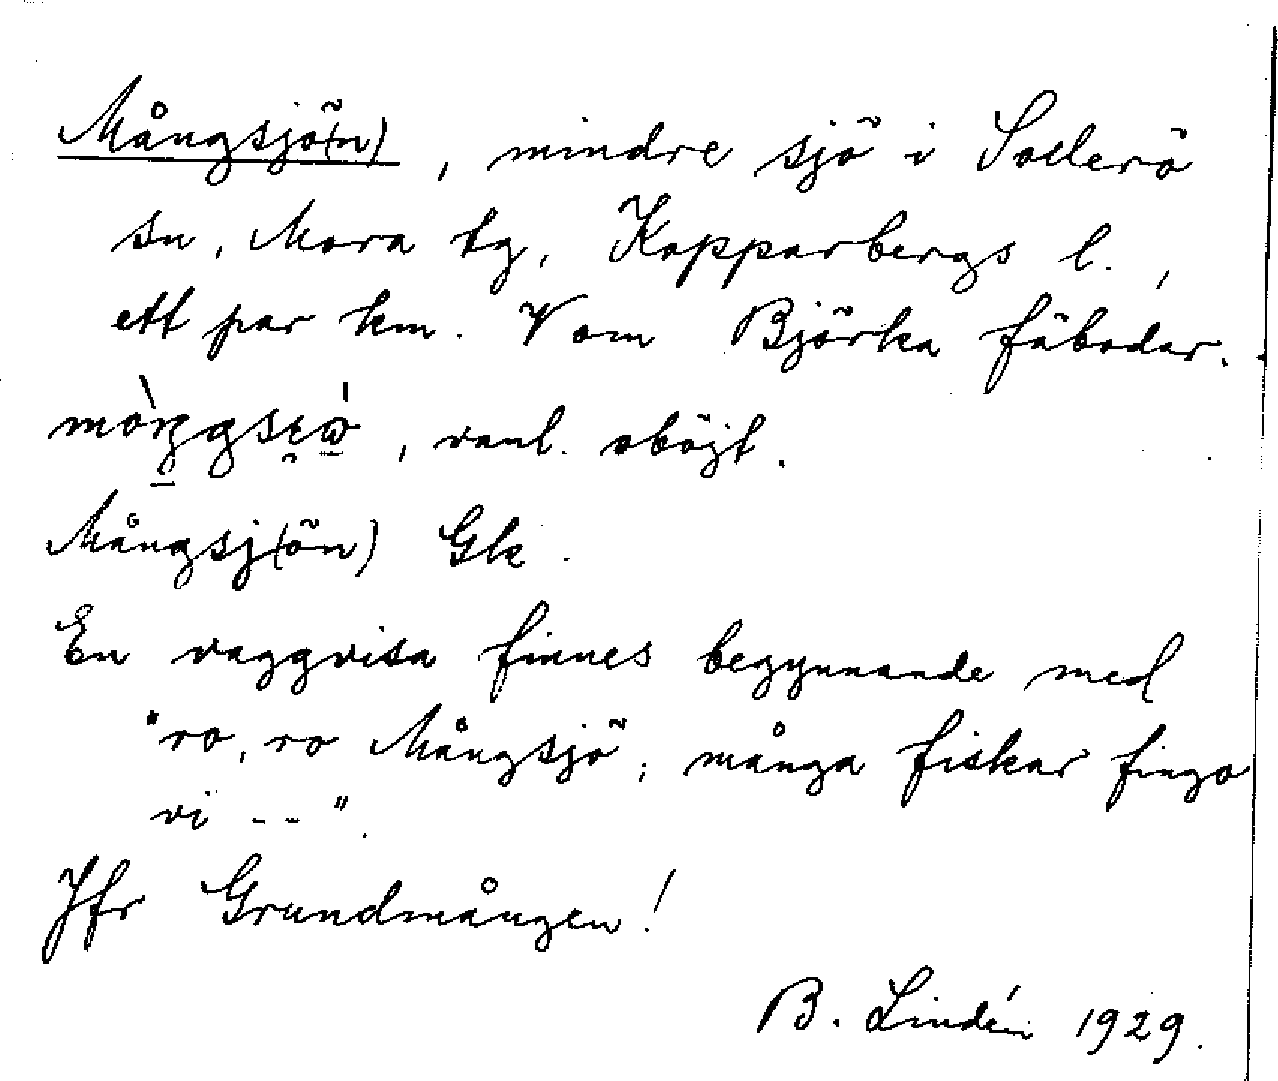 Mångsjö(n), mindre sjö i Sollerö
sn, Mora tg, Kopparbergs l.,
ett par km. V om Björka fäbodar.
, vanl. oböjt.
Mångsj(ön) Gk.
En vaggvisa finnes begynnande med
"ro, ro Mångsjö, många fiskar fingo
vi - -".
Jfr Grundmången!
B. Lindén 1929.